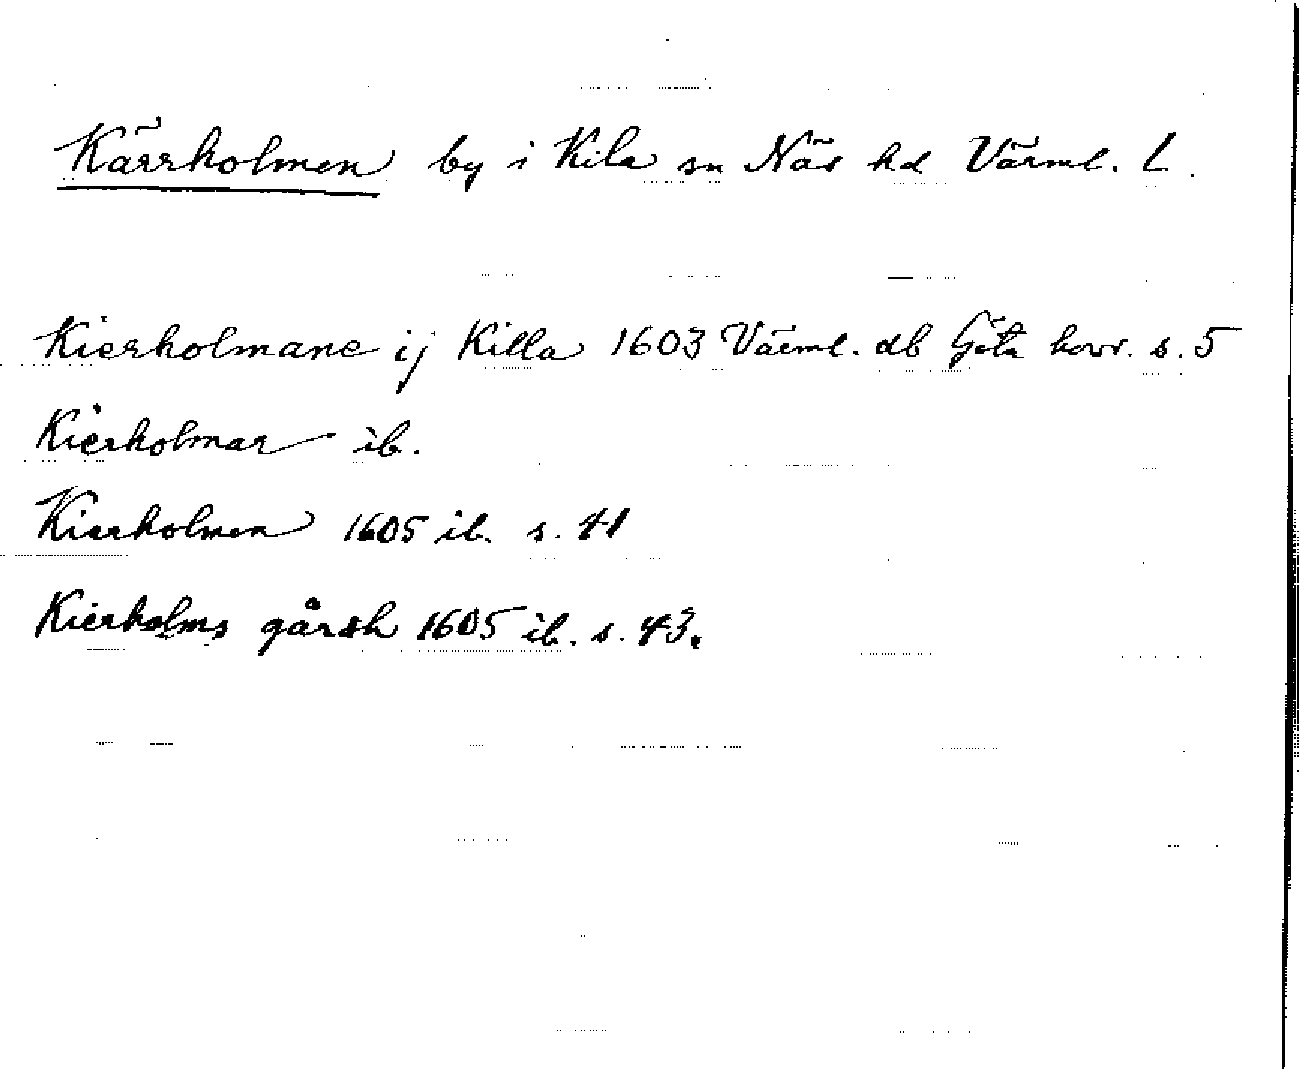 Kärrholmen by i Kila sn Näs hd Värml. l.
Kierholmane ij Killa 1603 Värml. db Göta hovr. s. 5
Kierholmar ib.
Kierholmen 1605 ib. s. 41
Kierholms gårdh 1605 ib. s. 43.